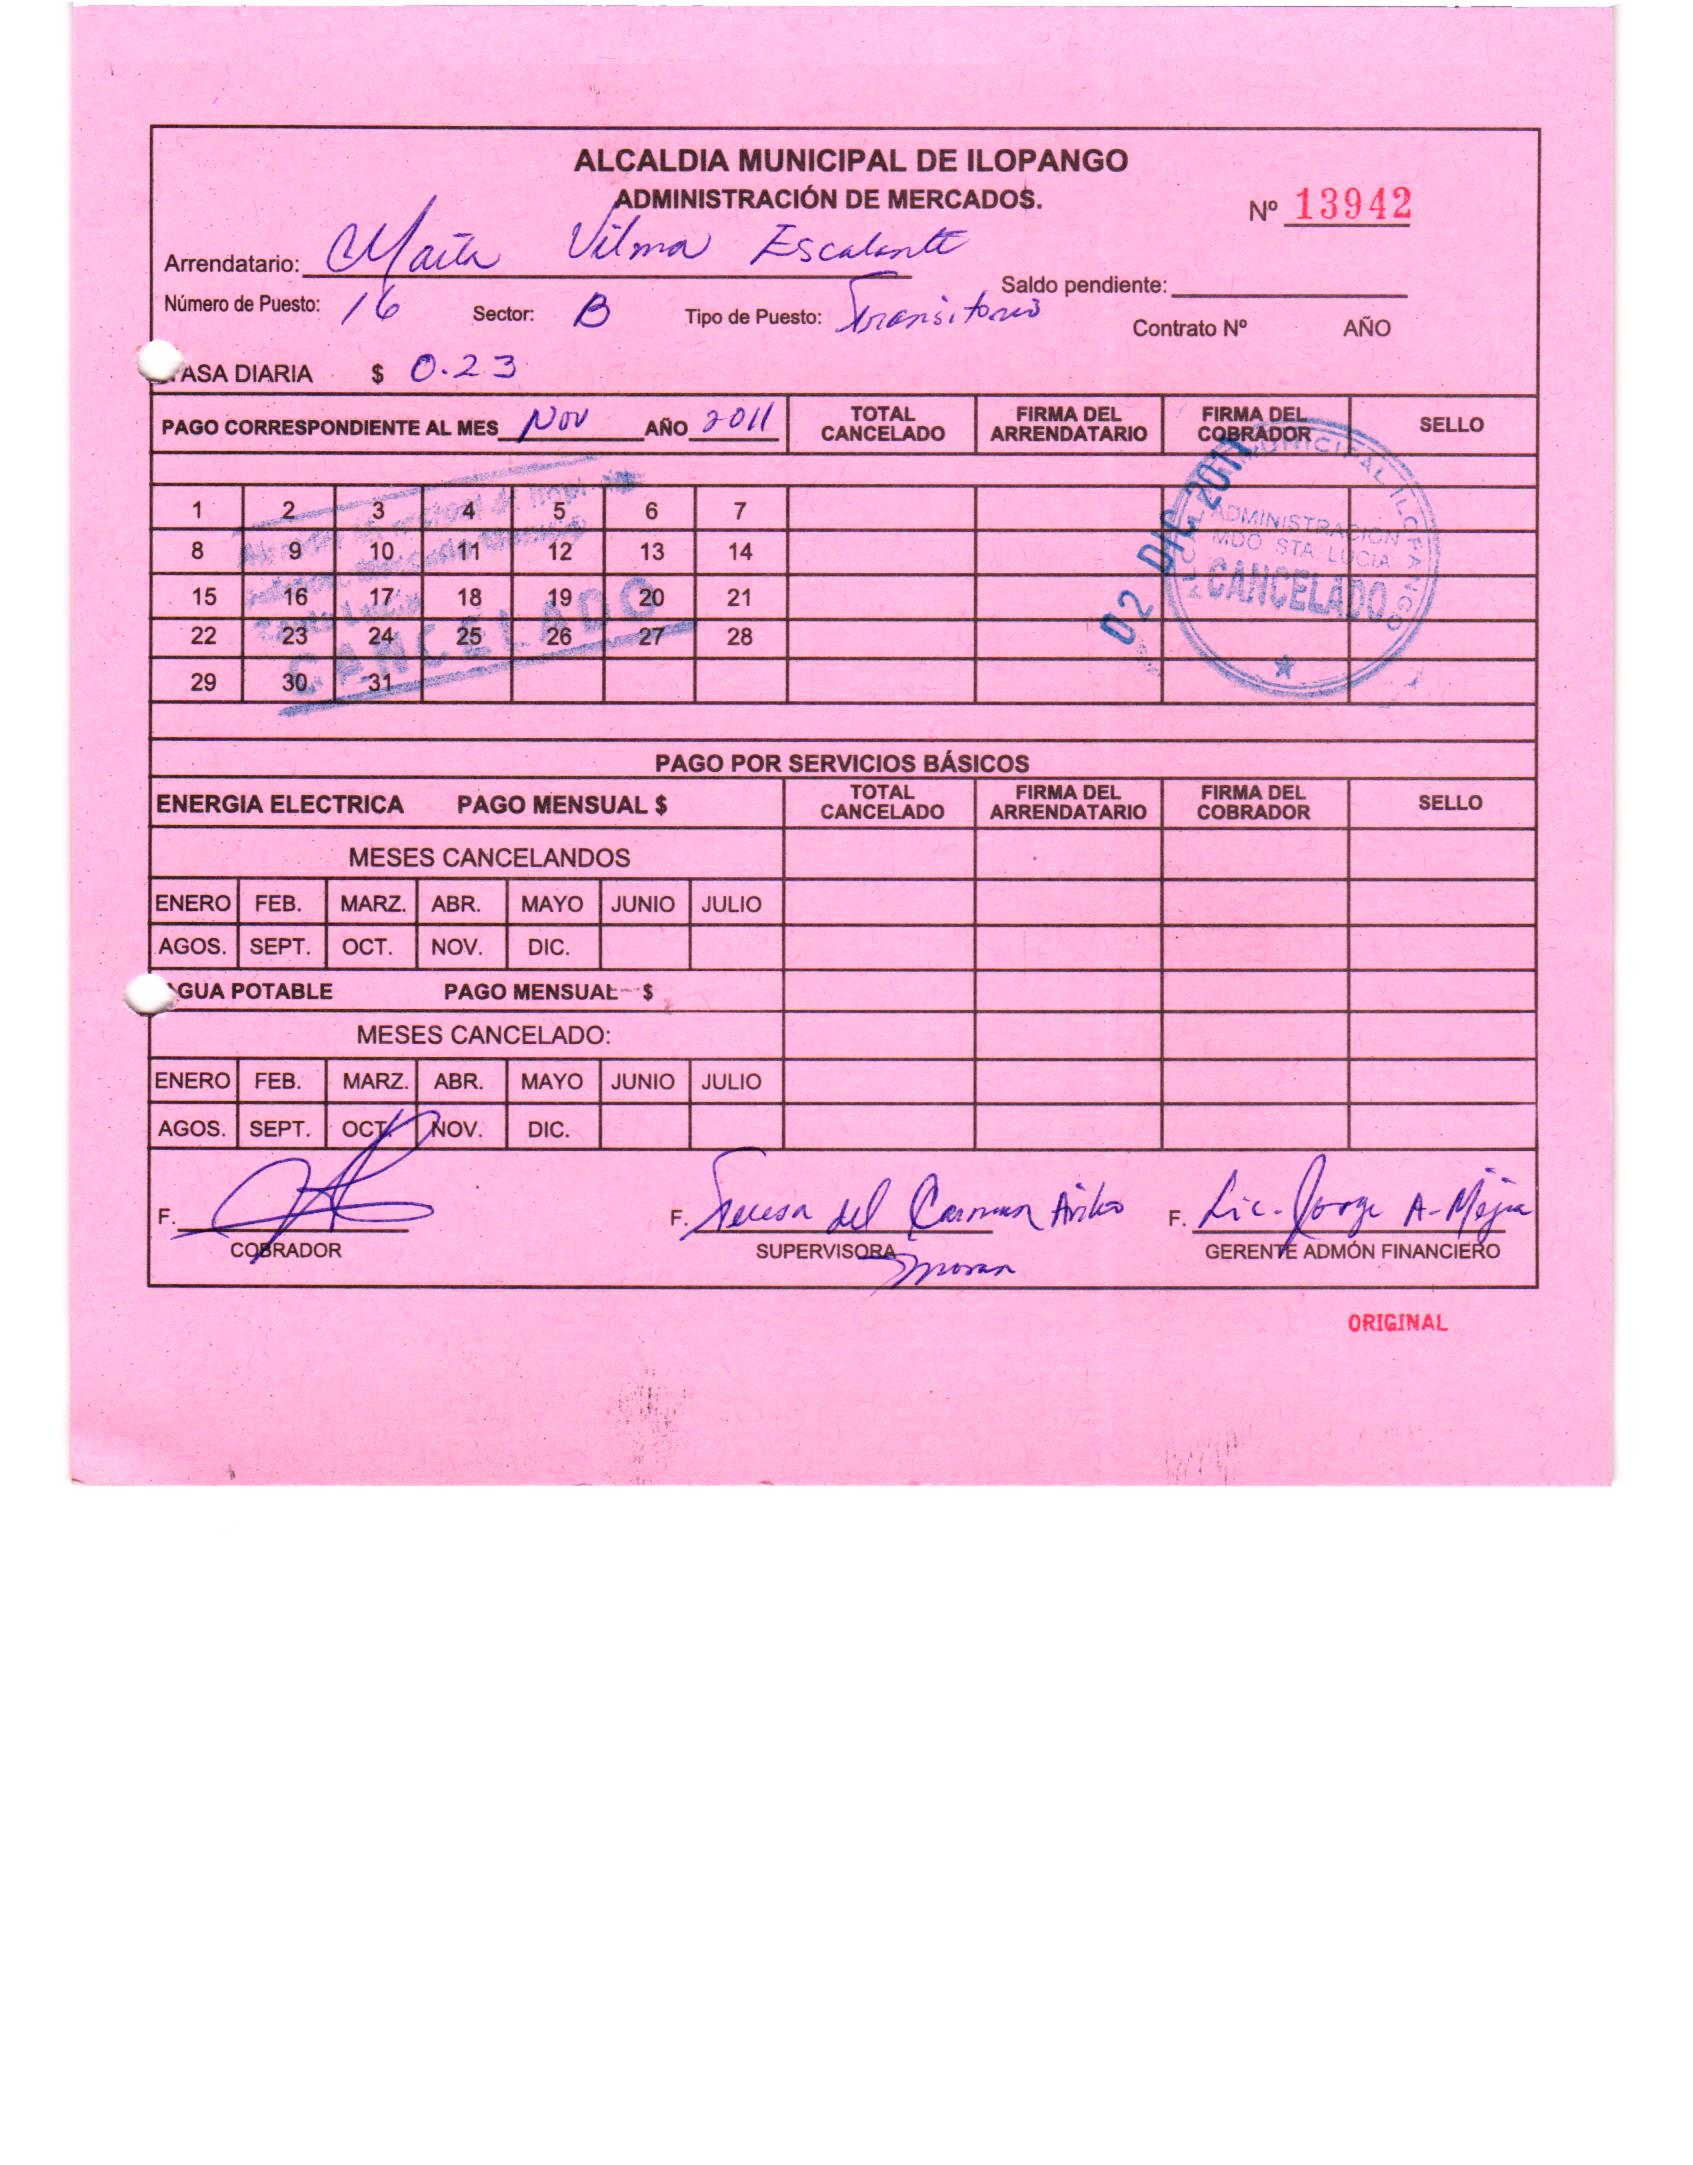 ALCALDIA MUNICIPAL DE ILOPANGO
ADMINISTRACIÓN DE MERCADOS.
Nº 13942
Arrendatario: Marta Vilma Escalante
Saldo pendiente:
Número de Puesto: 16 Sector: B Tipo de Puesto: Transitorio
Contrato Nº AÑO
TASA DIARIA $ 0.23
PAGO CORRESPONDIENTE AL MES Nov AÑO 2011 TOTAL CANCELADO FIRMA DEL ARRENDATARIO FIRMA DEL COBRADOR SELLO
1 2 3 4 5 6 7
8 9 10 11 12 13 14
15 16 17 18 19 20 21
22 23 24 25 26 27 28
29 30 31
CANCELADO
02 DIC 2011
ALCALDIA MUNICIPAL ILOPANGO
ADMINISTRACION
MDO STA. LUCIA
CANCELADO
PAGO POR SERVICIOS BÁSICOS
ENERGIA ELECTRICA PAGO MENSUAL $ TOTAL CANCELADO FIRMA DEL ARRENDATARIO FIRMA DEL COBRADOR SELLO
MESES CANCELANDOS
ENERO FEB. MARZ. ABR. MAYO JUNIO JULIO
AGOS. SEPT. OCT. NOV. DIC.
AGUA POTABLE PAGO MENSUAL $
MESES CANCELADO:
ENERO FEB. MARZ. ABR. MAYO JUNIO JULIO
AGOS. SEPT. OCT. NOV. DIC.
F. F. Teresa del Carmen F. Lic. Jorge A. Mejia
COBRADOR SUPERVISORA GERENTE ADMÓN FINANCIERO
ORIGINAL